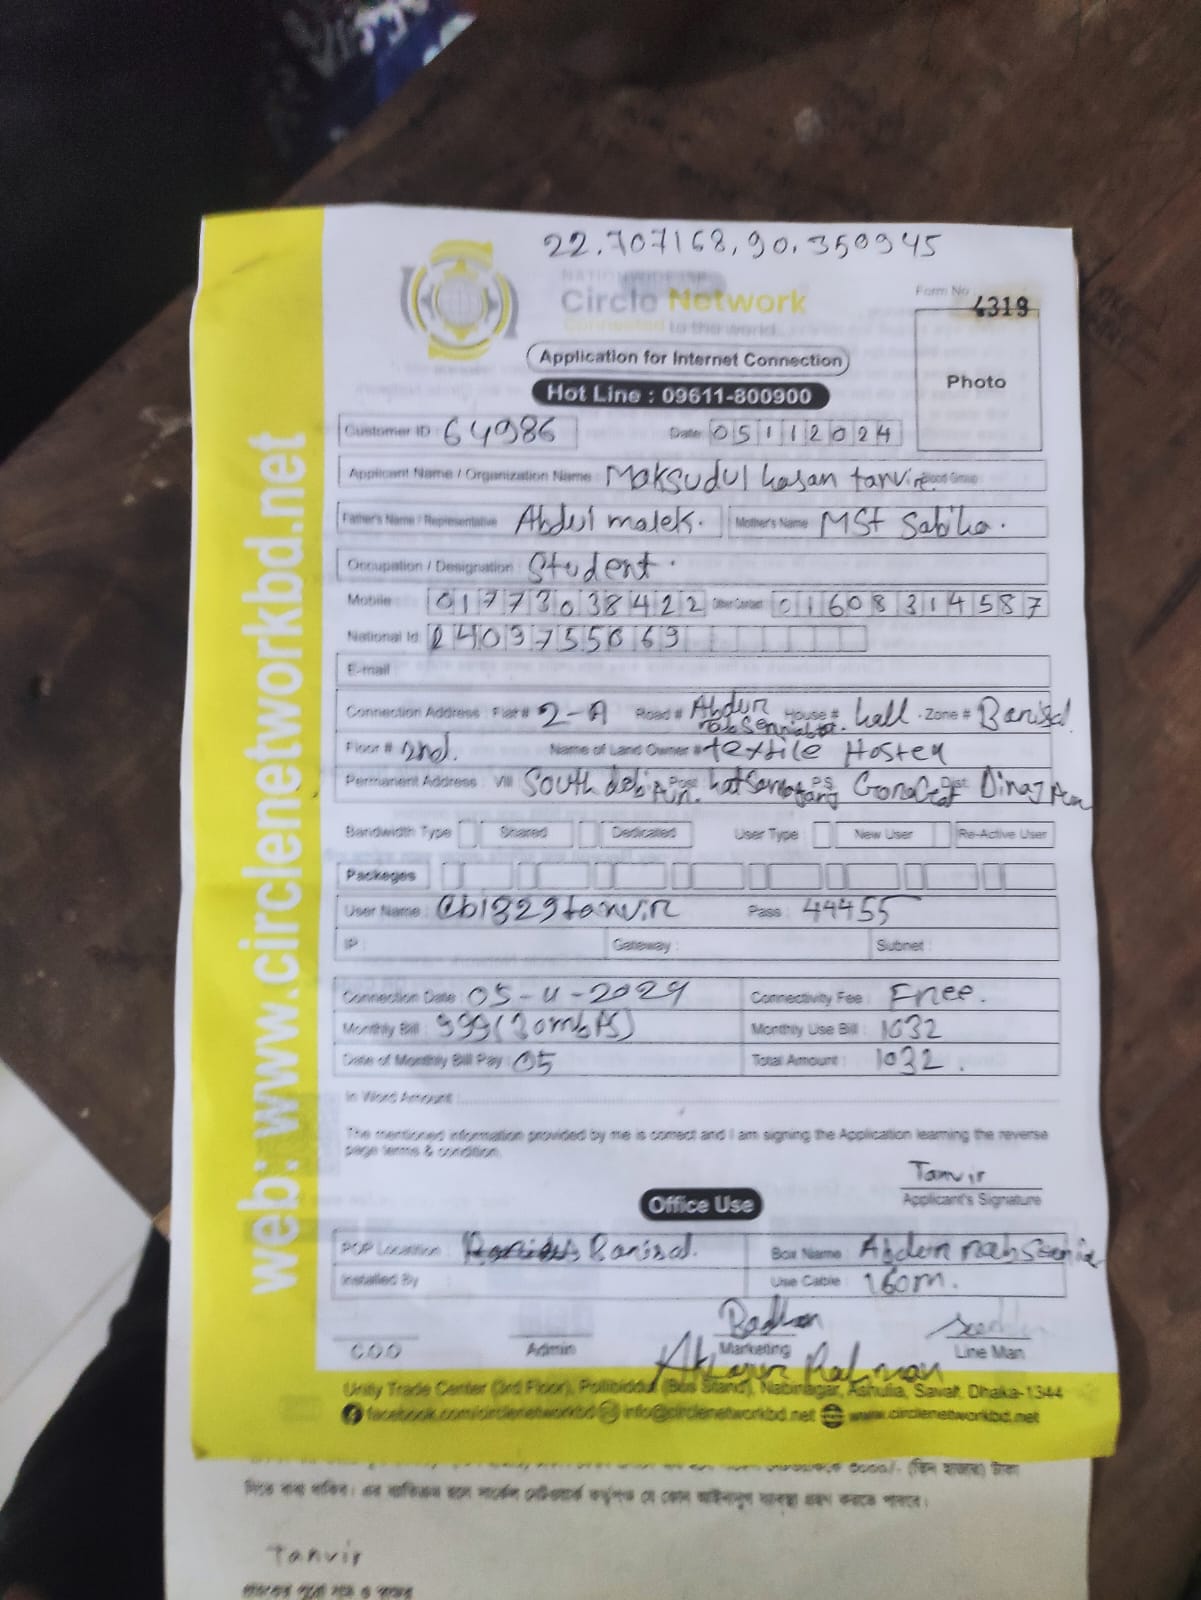 22.707168,90.350945
NATIONWIDE ISP
Circle Network
Connected to the world
Form No 4319
Photo
Application for Internet Connection
Hot Line : 09611-800900
Customer ID : 64986
Date: 05112024
Applicant Name / Organization Name : Maksudul hasan tanvir Blood Group :
Father's Name / Representative Abdul malek. Mother's Name MSt Sabiha.
Occupation / Designation : Student.
Mobile : 01773038422 Other Contact 01608314587
National Id: 2409755069
E-mail :
Connection Address : Flat # 2-A Road # Abdur rab Serniabat. House # hall. Zone # Barisal
Floor # 2nd. Name of Land Owner # textile Hostel
Permanent Address : Vill South Post P.S Dist Dinajpur
Bandwidth Type Shared Dedicated User Type : New User Re-Active User
Packeges
User Name : Cb1829tanvir Pass : 44455
IP : Gateway : Subnet :
Connection Date : 05-11-2024 Connectivity Fee : Free.
Monthly Bill : 999(30mbps) Monthly Use Bill : 1032
Date of Monthly Bill Pay : 05 Total Amount : 1032.
In Word Amount :
The mentioned information provided by me is correct and I am signing the Application learning the reverse
page terms & condition.
Tanvir
Applicant's Signature
Office Use
POP Location : Barisal. Box Name : Abdur rab
Installed By Use Cable : 160m.
Badhan
C.O.O Admin Marketing Line Man
Rahman
Unity Trade Center (3rd Floor), Pollibiddut (Bus Stand), Nabinagar, Ashulia, Savar, Dhaka-1344
facebook.com/circlenetworkbd info@circlenetworkbd.net www.circlenetworkbd.net
web: www.circlenetworkbd.net
৩০০০/- (তিন হাজার) টাকা
দিতে বাধ্য থাকিব। এর ব্যতিক্রম হলে সার্কেল নেটওয়ার্ক কর্তৃপক্ষ যে কোন আইনানুগ ব্যবস্থা গ্রহণ করতে পারবে।
Tanvir